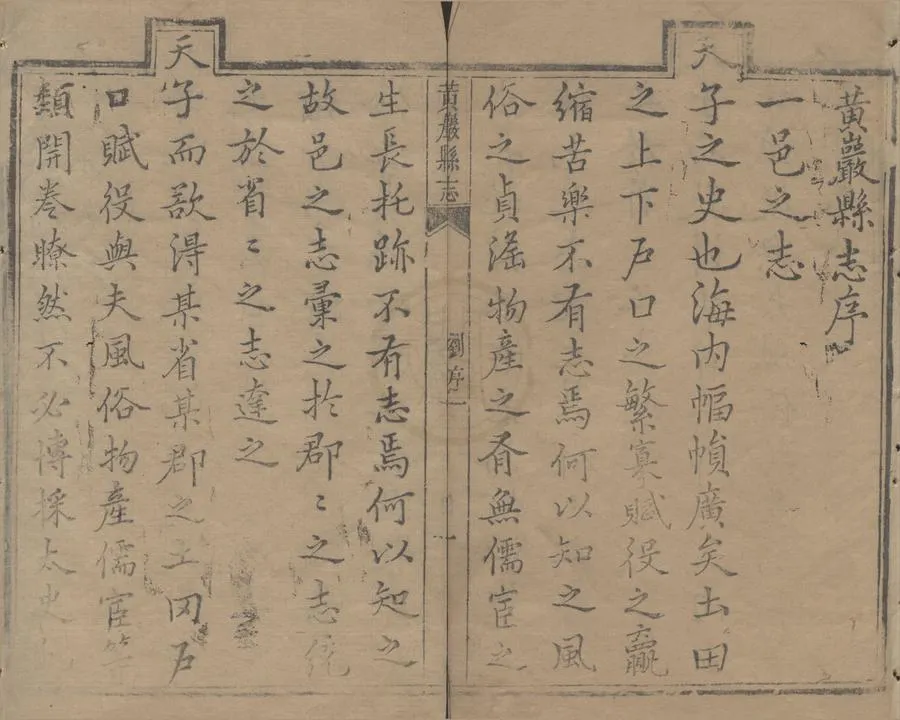 黃巖縣志序
一邑之志
天子之史也海内幅幀廣矣土田
之上下戶口之繁寡賦役之贏
縮苦樂不有志焉何以知之風
俗之貞滛物產之有無儒宦之
黃巖縣志
劉序
一
生長托跡不有志焉何以知之
故邑之志彙之於郡〻之志統
之於省〻之志達之
天子而欲得某省某郡之土田戶
口賦役與夫風俗物產儒宦等
類開卷瞭然不必博採太史